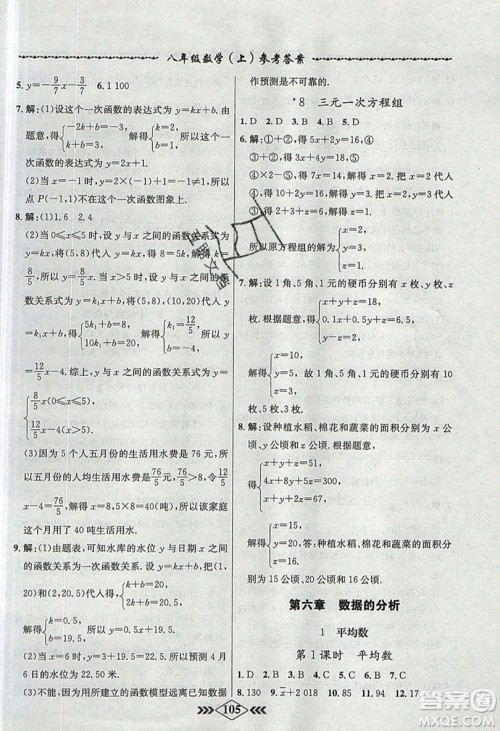 八年级数学(上)参考答案
5. y=-9/7x-3/70 6. 1 100
7. 解:(1)设这个一次函数的表达式为 y=kx+b. 由
题意,得{-2k+b=-3, k+b=3, 解得{k=2, b=1, 所以这个一
次函数的表达式为 y=2x+1.
(2)当 x=-1 时,y=2×(-1)+1=-1≠1,所以
点 P(-1,1)不在这个一次函数图象上.
8. 解:(1)1.6 2.4
(2)当 0≤x≤5 时,设 y 与 x 之间的函数关系式为
y=kx,将(5,8)代入 y=kx,得 5k=8,解得 k=
8/5,所以 y=8/5x. 当 x>5 时,设 y 与 x 之间的
函数关系式为 y=k₁x+b,将(5,8),(10,20)代入
y=k₁x+b,得{5k₁+b=8, 10k₁+b=20, 解得{k₁=12/5, b=-4, 所以
y=12/5x-4. 综上,y 与 x 之间的函数关系式为
y={8/5x(0≤x≤5), 12/5x-4(x>5).
(3)因为这 5 个人五月份的生活用水费是 76 元,
所以五月份的人均生活用水费为 76/5 元,所以 12/5
x-4=76/5,解得 x=8,5×8=40(吨). 所以该家庭
这个月用了 40 吨生活用水.
9. 解:(1)由题表,可知水库的水位 y 与日期 x 三间的
函数关系为一次函数关系. 设水位 y 与日期 x 之间
的函数关系式为 y=kx+b,则{k+b=20, 2k+b=20.5,
解得{k=0.5, b=19.5, 所以 y=0.5x+19.5.
(2)当 x=6 时,y=3+19.5=22.5. 所以预测该水库
4 月 6 日的水位是 22.5 米.
(3)不能,因为用所建立的函数模型远离已知数据
作预测是不可靠的.
*8 三元一次方程组
1. D 2. D 3. B 4. D 5. D
6. 解:①+②,得 5x+2y=16,④
③+②,得 3x+4y=18,⑤
所以原方程组的解为
7. 解:设 1 角、5 角、1 元的硬币分别取出 x 枚、y 枚、
z 枚. 根据题意,得
解得{x=5, y=3, z=7. 所以 1 角、5 角、1 元的硬币分别有
5 枚、3 枚、7 枚.
8. 解:设种植水稻、棉花和蔬菜的面积分别为 x 公顷、
y 公顷和 z 公顷. 根据题意,得
{x+y+z=51, 4x+8y+5z=300, x+y+2z=67, 解得{x=15, y=20, z=16.
答:种植水稻、棉花和蔬菜的面积分别为 15 公顷、
20 公顷和 16 公顷.
第六章 数据的分析
1 平均数
第 1 课时 平均数
1. D 2. A 3. B 4. C 5. D 6. C 7. D
8. 130 9. x̄+2 018 10. 85 11. 89 12. 17
105